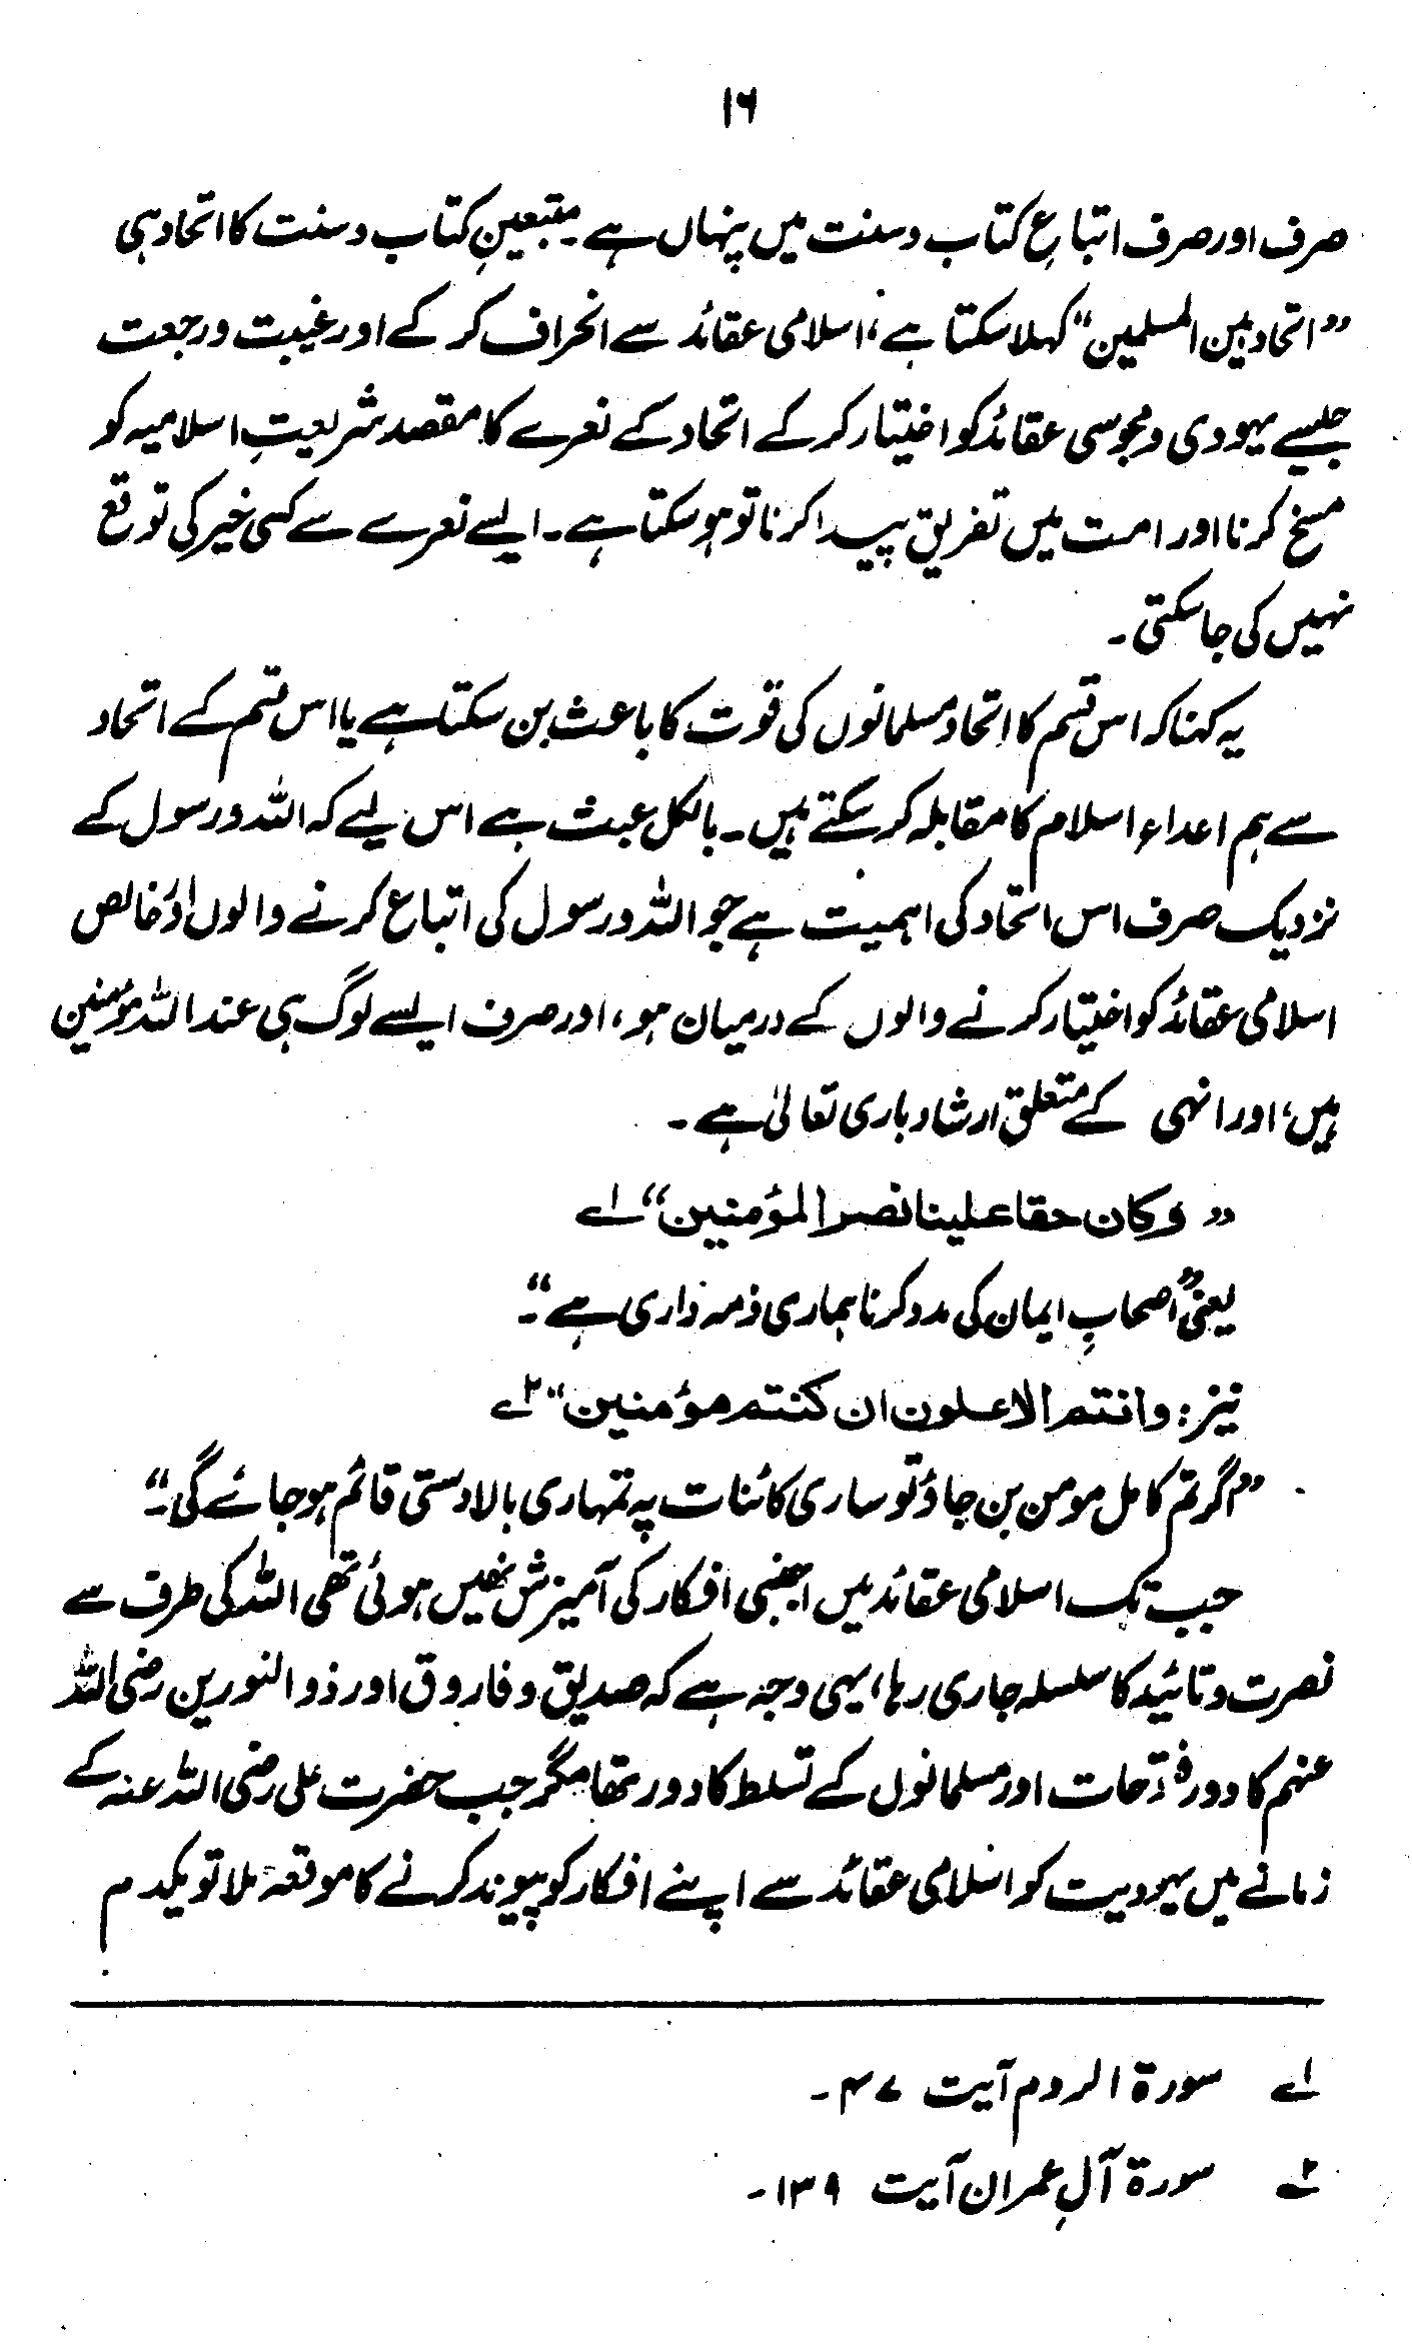 ۱۶
صرف اور صرف اتباعِ کتاب و سنت میں پنہاں ہے۔ متبعینِ کتاب و سنت کا اتحاد ہی
”اتحاد بین المسلمین“ کہلا سکتا ہے، اسلامی عقائد سے انحراف کر کے اور غیبت و رجعت
جیسے یہودی و مجوسی عقائد کو اختیار کر کے اتحاد کے نعرے کا مقصد شریعتِ اسلامیہ کو
مسخ کرنا اور امت میں تفریق پیدا کرنا تو ہو سکتا ہے۔ ایسے نعرے سے کسی خیر کی توقع
نہیں کی جا سکتی۔
یہ کہنا کہ اس قسم کا اتحاد مسلمانوں کی قوت کا باعث بن سکتا ہے یا اس قسم کے اتحاد
سے ہم اعداء اسلام کا مقابلہ کر سکتے ہیں۔ بالکل عبث ہے اس لیے کہ اللہ و رسول کے
نزدیک صرف اس اتحاد کی اہمیت ہے جو اللہ و رسول کی اتباع کرنے والوں اور خالص
اسلامی عقائد کو اختیار کرنے والوں کے درمیان ہو، اور صرف ایسے لوگ ہی عند اللہ مؤمنین
ہیں، اور انہی کے متعلق ارشاد باری تعالیٰ ہے۔
”وکان حقا علینا نصر المؤمنین“ ۱ے
یعنی ”اصحابِ ایمان کی مدد کرنا ہماری ذمہ داری ہے“۔
نیز: وانتم الاعلون ان کنتم مؤمنین“ ۲ے
”اگر تم کامل مومن بن جاؤ تو ساری کائنات پہ تمہاری بالادستی قائم ہو جائے گی“۔
جب تک اسلامی عقائد میں اجنبی افکار کی آمیزش نہیں ہوئی تھی اللہ کی طرف سے
نصرت و تائید کا سلسلہ جاری رہا، یہی وجہ ہے کہ صدیق و فاروق اور ذوالنورین رضی اللہ
عنہم کا دور فتوحات اور مسلمانوں کے تسلط کا دور تھا مگر جب حضرت علی رضی اللہ عنہ کے
زمانے میں یہودیت کو اسلامی عقائد سے اپنے افکار کو پیوند کرنے کا موقعہ ملا تو یکدم
۱ے سورۃ الروم آیت ۴۷۔
۲ے سورۃ آلِ عمران آیت ۱۳۹۔